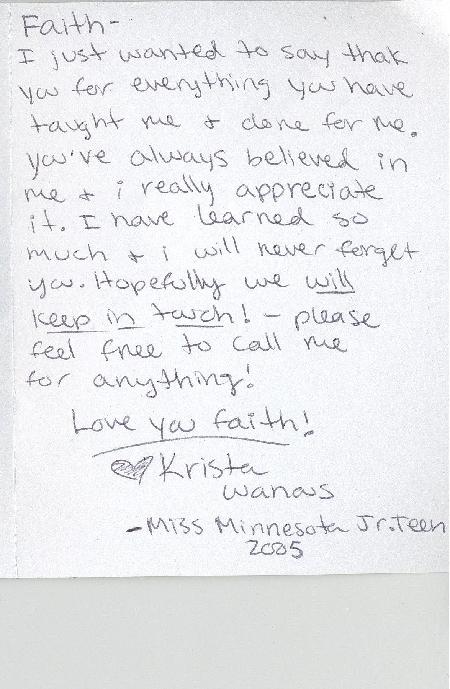 Faith-
I just wanted to say thak
you for everything you have
taught me + done for me.
you've always believed in
me + i really appreciate
it. I have learned so
much + i will never forget
you. Hopefully we will
keep in touch! - please
feel free to call me
for anything!
Love you faith!
Krista
wanous
-Miss Minnesota Jr. Teen
2005